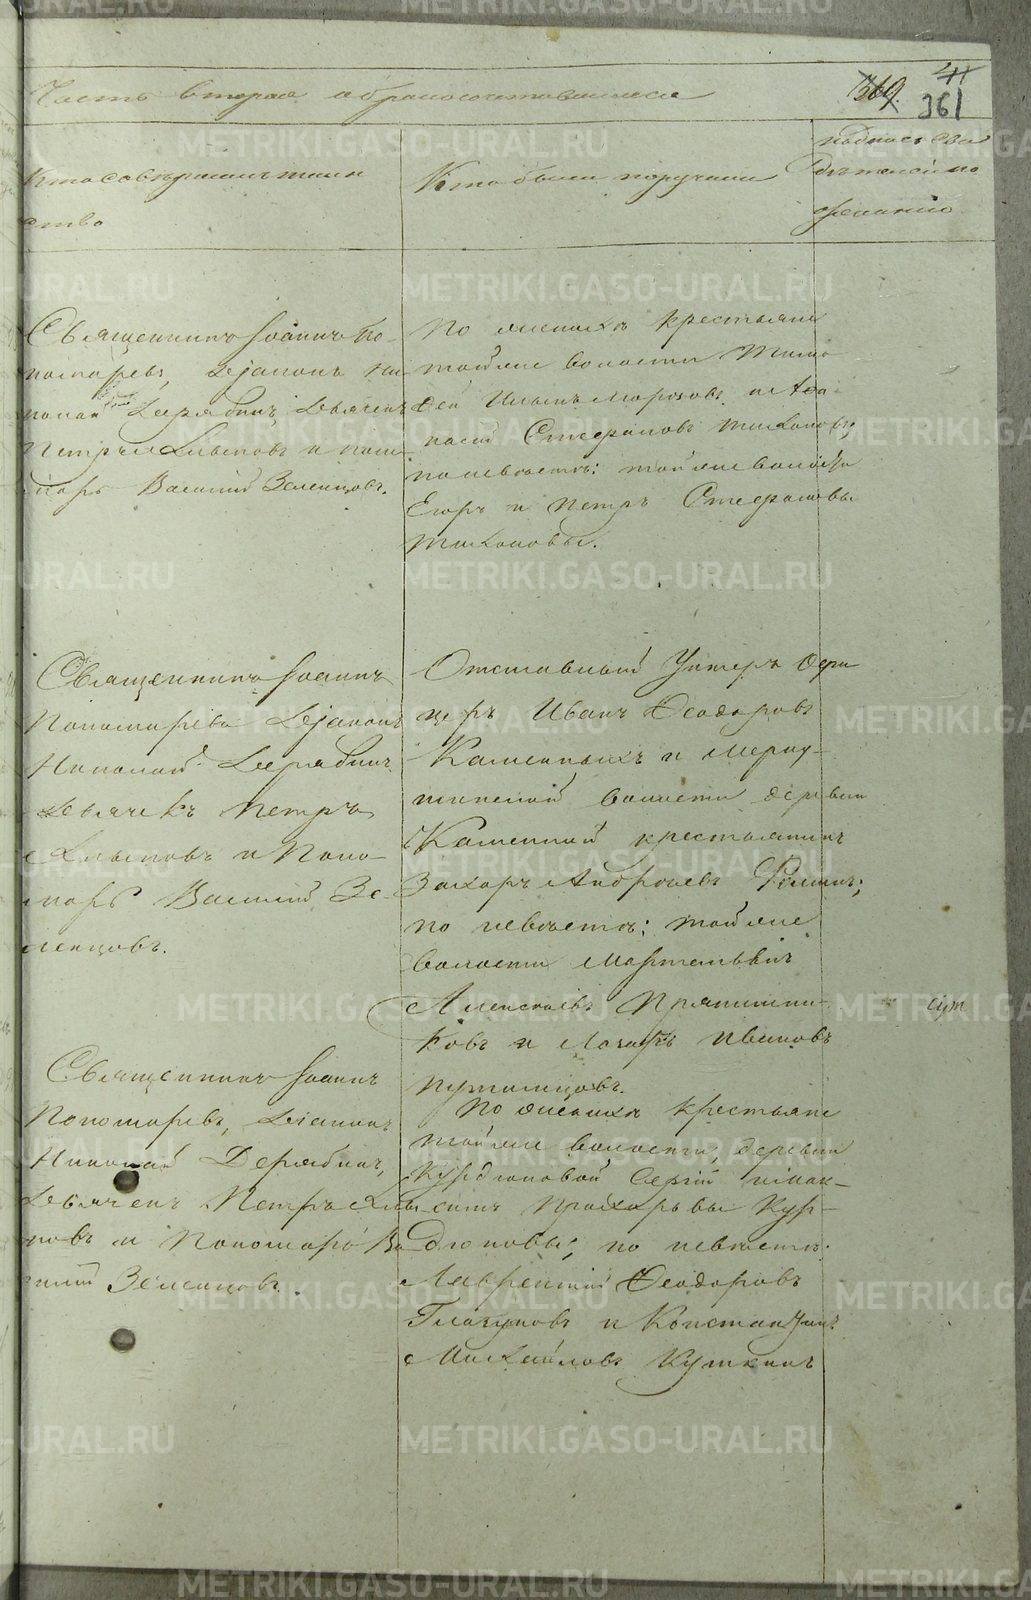 Часть вторая о бракосочетавшихся
369. 41
361
Кто совершалъ таин
ство
Кто были поручители
подпись сви
дѣтелей по
желанію
Священникъ Іоаннъ По-
номаревъ, Діаконъ Ни-
колай Дерябинъ, Дьячекъ
Петръ Хлыновъ и поно-
марь Василій Зеленцовъ.
По женихѣ крестьяне
той же волости Тимо
фей Ильинъ Морозовъ и Афа-
насій Стефановъ Тихоновъ,
по невѣстѣ: той же волости
Егоръ и Петръ Стефановы
Тихоновы.
Священникъ Іоаннъ
Пономаревъ Діаконъ
Николай Дерябинъ
Дьячекъ Петръ
Хлыновъ и Поно-
марь Василій Зе-
ленцовъ.
Отставный Унтеръ офи
церъ Иванъ Феодоровъ
Каменныхъ и
волости деревни
Каменной крестьянинъ
Захаръ Андреевъ
по невѣстѣ: той же
волости
Алексѣевъ Прянишни-
ковъ и Ивановъ
Путимцовъ.
Священникъ Іоаннъ
Пономаревъ, Діаконъ
Николай Дерябинъ,
Дьячекъ Петръ Хлы
новъ и Пономарь Ва
силій Зеленцовъ.
По женихѣ крестьяне
той же волости, деревни
Курдюковой Сергій и Мак-
симъ Прохоровы Кур-
дюковы; по невѣстѣ
Лаврентій Феодоровъ
Глазуновъ и Константинъ
Михайловъ Куткинъ
METRIKI.GASO-URAL.RU